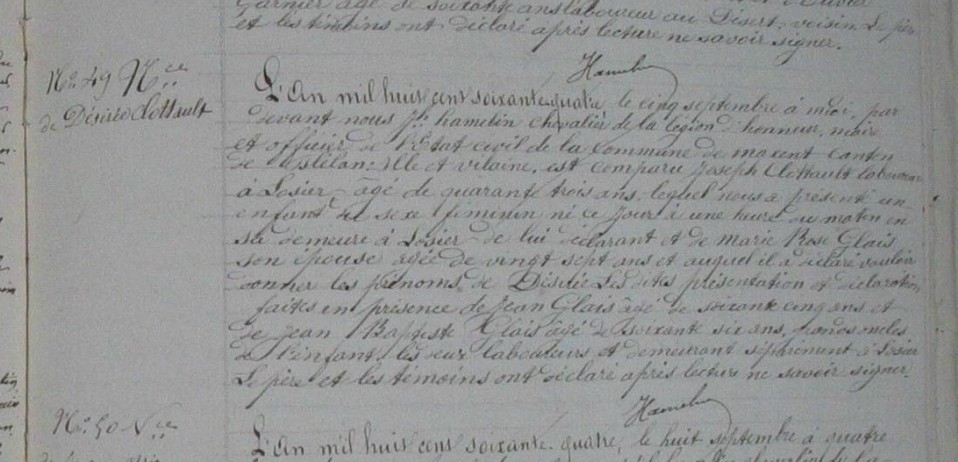 Garnier âgé de soixante ans laboureur au Désert voisin. Le père
et les témoins ont déclaré après lecture ne savoir signer.
Hamelin
No. 49 Nce
de Désirée Clottault
L'An mil huit cent soixante quatre le cinq septembre à midi, par
devant nous Jh hamelin chevalier de la légion d'honneur, maire
et officier de l'Etat civil de la Commune de maxent canton
de Plélan, Ille et vilaine, est comparu Joseph Clottault laboureur
à Losier âgé de quarante trois ans lequel nous a présenté un
enfant de sexe féminin né ce jour à une heure du matin en
sa demeure à Losier de lui déclarant et de Marie Rose Glais
son épouse âgée de vingt sept ans et auquel il a déclaré vouloir
donner les prénoms de Désirée Les dites présentation et déclaration
faites en présence de Jean Glais âgé de soixante cinq ans et
de Jean Baptiste Glais âgé de soixante six ans, oncles
de l'enfant, les deux laboureurs et demeurant séparément à Losier
Le père et les témoins ont déclaré après lecture ne savoir signer.
Hamelin
No. 50 Nce
L'An mil huit cent soixante quatre, le huit septembre à quatre